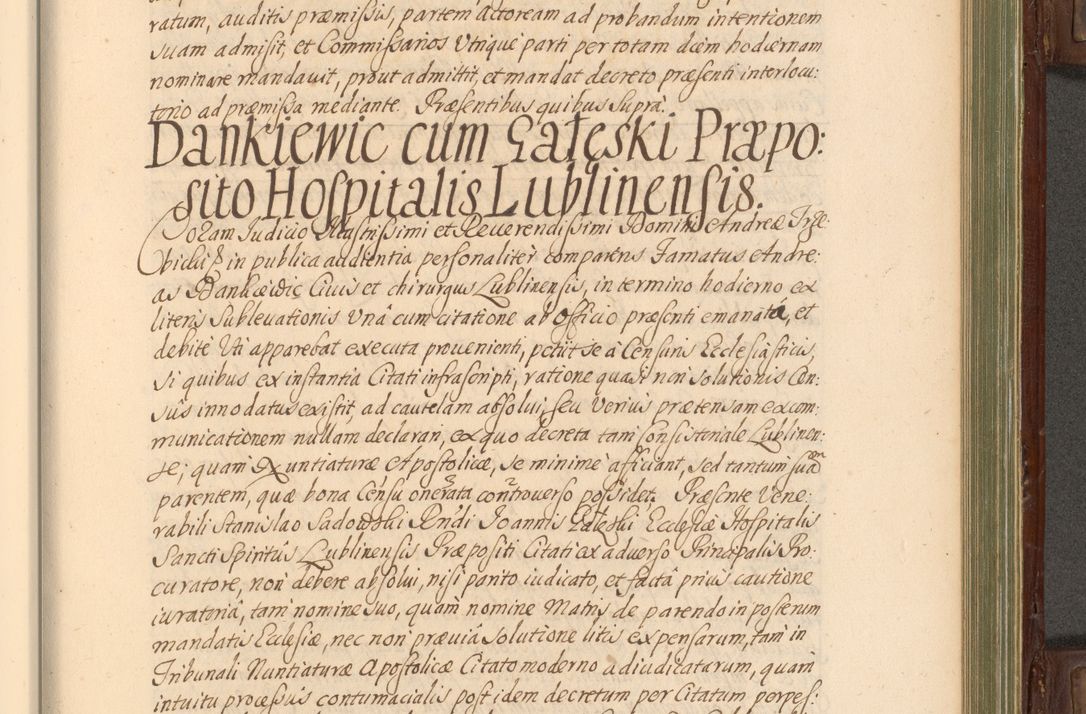 ratum, auditis præmissis, partem actoream ad probandum intentionem
suam admisit, et Commissarios Utrique parti per totam diem hodiernam
nominare mandauit, prout admittit, et mandat decreto præsenti interlocu:
torio ad præmissa mediante. Præsentibus quibus supra.
Dankiewic cum Gałęski Præpo:
sito Hospitalis Lublinensis.
Coram Iudicio Illustrissimi et Reuerendissimi Domini Andreæ Trze:
bicki in publica audientia personaliter comparens Famatus Andre:
as Dankiewic Ciuis et chirurgus Lublinensis, in termino hodierno ex
literis Subleuationis Unà cum citatione ab Officio præsenti emanatâ, et
debitè Uti apparebat executa prouenienti, petiit se à Censuris Ecclesiasticis,
si quibus ex instantia Citati infrascripti, ratione quasi non solutionis Cen:
sus innodatus existit, ad cautelam absolui, seu Verius prætensam excom:
municationem nullam declarari, ex quo decreta tam Consistoriale Lublinen:
se, quam Nuntiaturæ Apostolicæ, se minimè afficiant, sed tantum suam
parentem, quæ bona Censu onerata controuerso possidet. Præsente Vene:
rabili Stanislao Sadowski Rndi Joannis Gałęski Ecclesiæ Hospitalis
Sancti Spiritûs Lublinensis Præpositi Citati ex aduerso Principalis Pro:
curatore, non debere absolui, nisi parito iudicato, et factâ prius cautione
iuratoriâ, tam nomine suo, quam nomine Matris de parendo in posterum
mandatis Ecclesiæ, nec non præuiâ solutione litis expensarum, tam in
Tribunali Nuntiaturæ Apostolicæ Citato moderno adiudicatarum, quam
intuitu processus contumacialis post idem decretum per Citatum perpes: